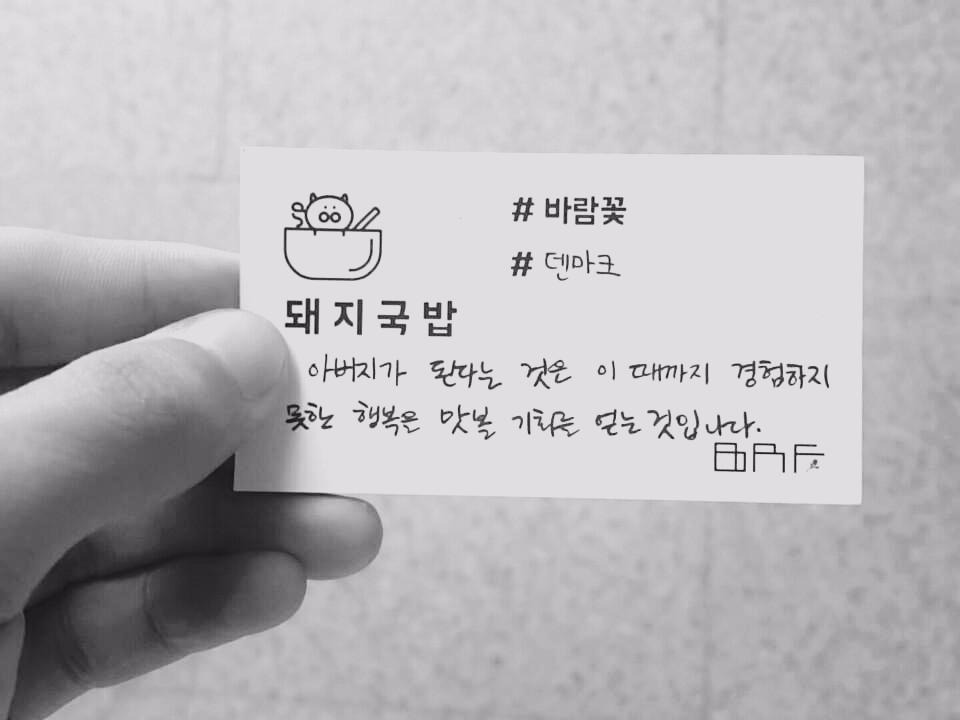 # 바람꽃
# 덴마크
돼지국밥
아버지가 된다는 것은 이 때까지 경험하지
못한 행복을 맛볼 기회를 얻는 것입니다.
BAF